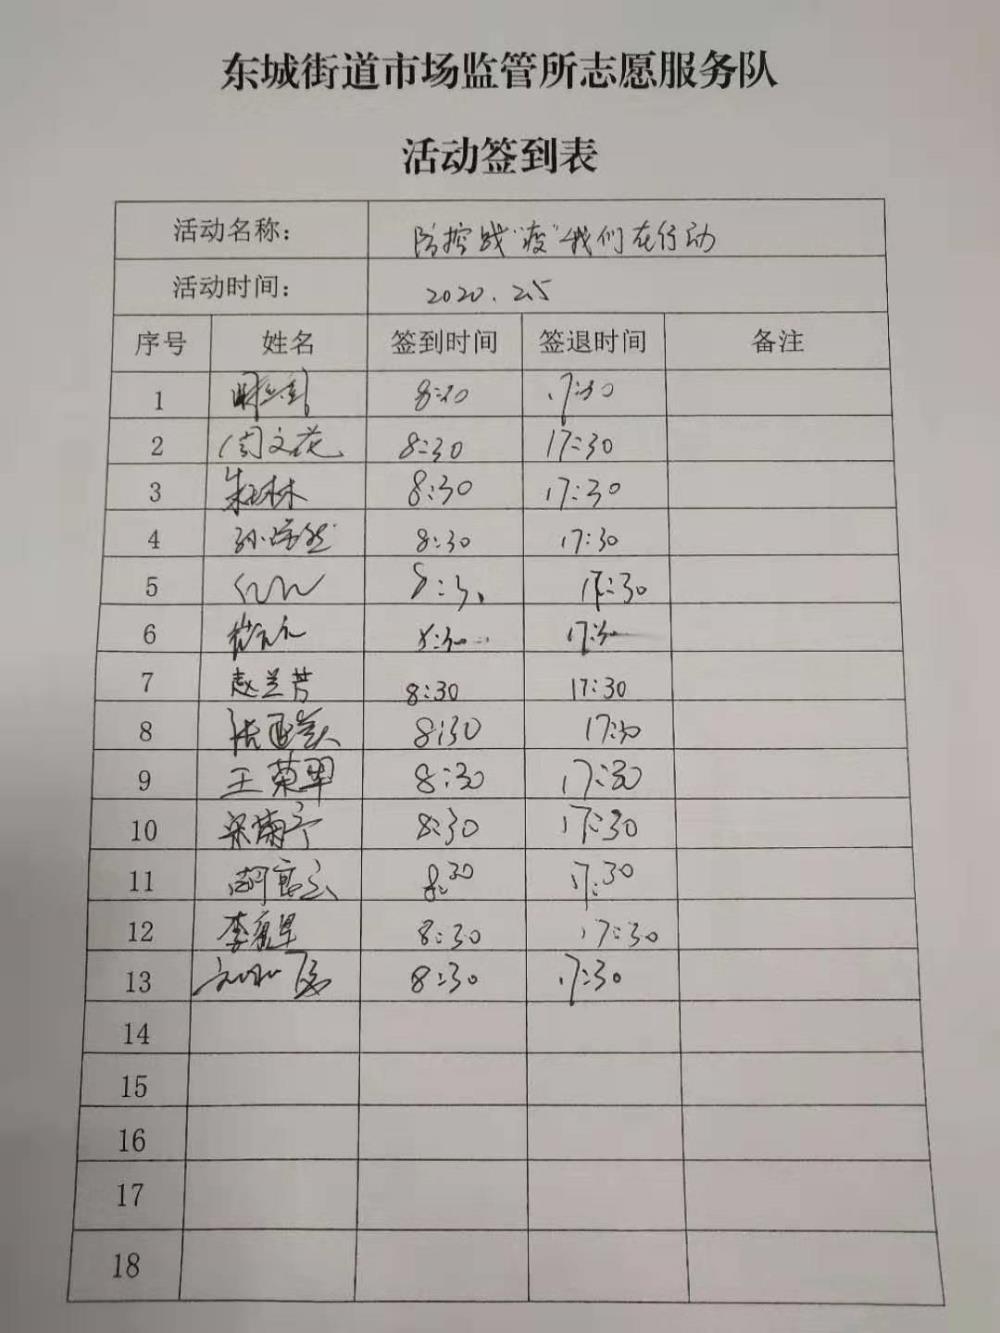 东城街道市场监管所志愿服务队
活动签到表
活动名称： 防控战“疫”我们在行动
活动时间： 2020.2.5
序号 姓名 签到时间 签退时间 备注
1 8:30 17:30
2 周文花 8:30 17:30
3 朱林 8:30 17:30
4 8:30 17:30
5 8:30 17:30
6 8:30 17:30
7 赵兰芳 8:30 17:30
8 8:30 17:30
9 王荣翠 8:30 17:30
10 8:30 17:30
11 8:30 17:30
12 8:30 17:30
13 8:30 17:30
14
15
16
17
18